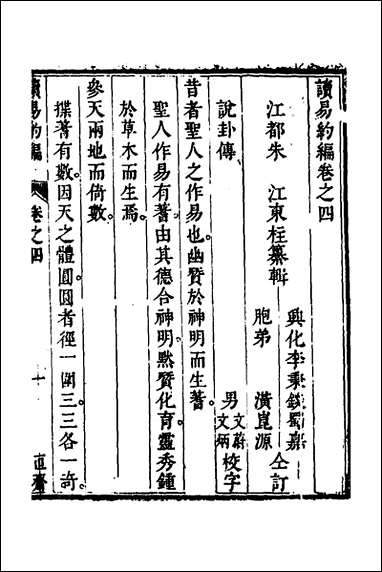 讀易約編卷之四
江都朱 江東柱纂輯
興化李秉鋑蜀嘉
胞弟 潢崑源
仝訂
說卦傳
男文蔚
文炳
校字
昔者聖人之作易也幽贊於神明而生蓍。
聖人作易有蓍由其德合神明黙贊化育。靈秀鍾
於草木而生焉。
參天兩地而倚數。
揲蓍有數。因天之體圓。圓者徑一圍三。三各一奇。
讀易約編
卷之四
一
直齋